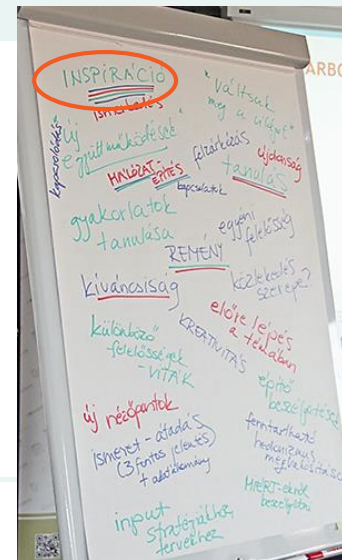 INSPIRÁCIÓ
ismerkedés
"Váltsuk
meg a világot"
új
együttműködések
kapcsolódás
HÁLÓZAT-
ÉPÍTÉS
kapcsolatok
felzárkózás
újdonság
tanulás
gyakorlatok
tanulása
egyéni
felelősség
REMÉNY
kíváncsiság
közlekedés
szerepe?
különböző
felelősségek
- VITÁK
KREATIVITÁS
előre lépés
a témában
építő
beszélgetések
új nézőpontok
ismeret-átadás
(3 fontos jelentés)
fenntartható
hedonizmus
megvalósítása
MIÉRT-ekről
beszélgetni
input
stratégiákhoz,
tervekhez
ARBO